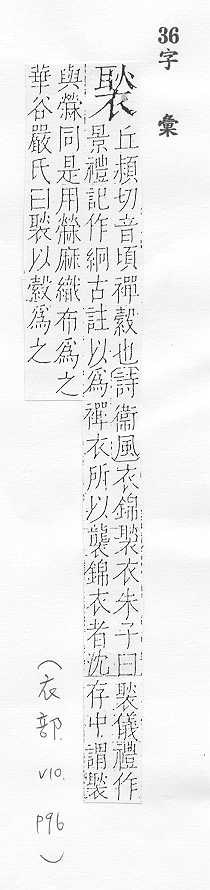 36字 彙
褧
丘頻切音頃襌縠也詩衞風衣錦褧衣朱子曰褧儀禮作
景禮記作絅古註以為襌衣所以襲錦衣者沈存中謂褧
與檾同是用檾麻織布為之
華谷嚴氏曰褧以縠為之
(衣部. V10. P96)